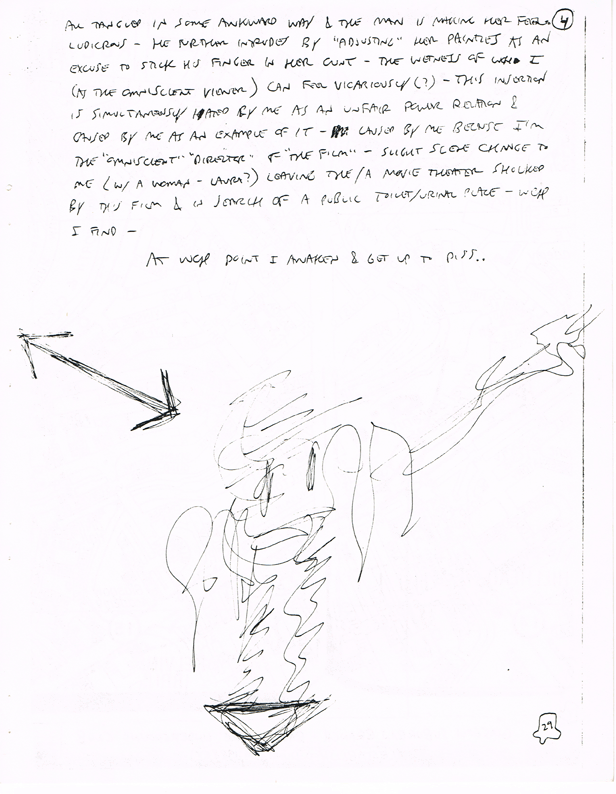 ALL TANGLED IN SOME AWKWARD WAY & THE MAN IS MAKING HER FEEL 4
LUDICROUS - HE FURTHER INTRUDES BY "ADJUSTING" HER PANTIES AS AN
EXCUSE TO STICK HIS FINGER IN HER CUNT - THE WETNESS OF WHICH I
(AS THE OMNISCIENT VIEWER) CAN FEEL VICARIOUSLY (?) - THIS INSERTION
IS SIMULTANEOUSLY HATED BY ME AS AN UNFAIR POWER RELATION &
CAUSED BY ME AS AN EXAMPLE OF IT - CAUSED BY ME BECAUSE I'M
THE "OMNISCIENT" "DIRECTOR" OF "THE FILM" - SLIGHT SCENE CHANGE TO
ME (W/ A WOMAN - LAURA?) LEAVING THE/A MOVIE THEATER SHOCKED
BY THIS FILM & IN SEARCH OF A PUBLIC TOILET/URINAL PLACE - WCH
I FIND -
AT WCH POINT I AWAKEN & GET UP TO PISS..
29